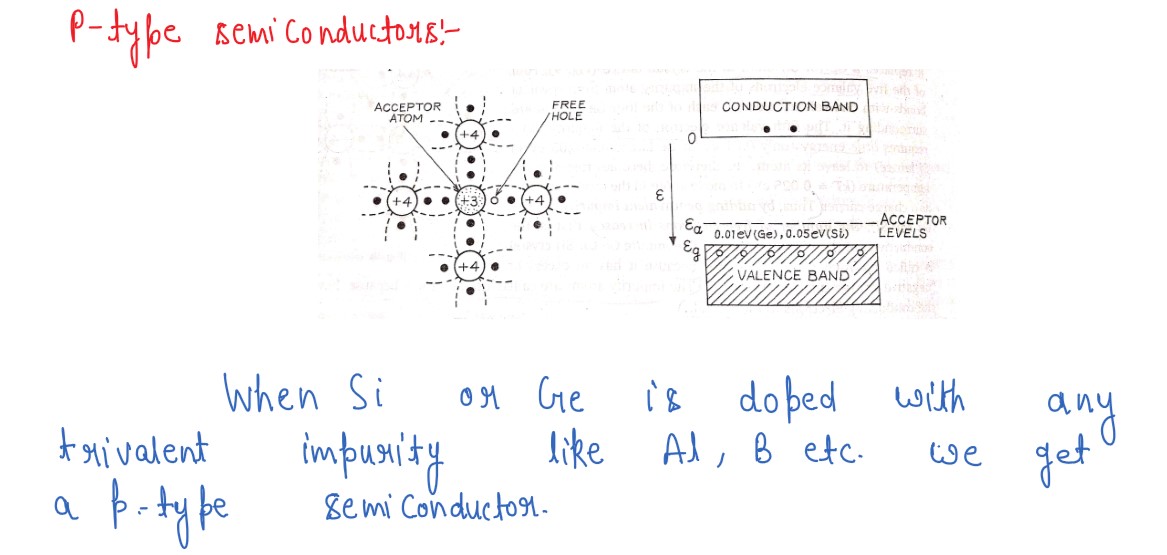 P-type semiconductors:-
ACCEPTOR ATOM
FREE HOLE
+4
+4
+3
+4
+4
CONDUCTION BAND
0
ε
εa
ACCEPTOR LEVELS
0.01eV(Ge), 0.05eV(Si)
εg
VALENCE BAND
When Si or Ge is doped with any
trivalent impurity like Al, B etc. we get
a p-type semiconductor.